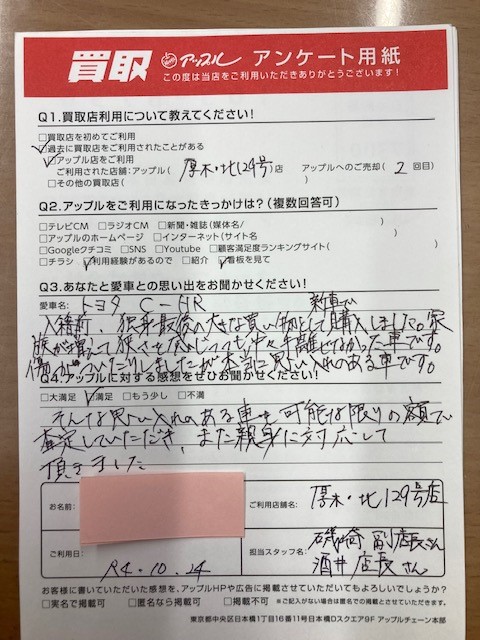 買取 アップル アンケート用紙
この度は当店をご利用いただきありがとうございます!
Q1.買取店利用について教えてください!
□買取店を初めてご利用
☑過去に買取店をご利用されたことがある
☑アップル店をご利用
ご利用された店舗:アップル( 厚木・北129号 )店 アップルへのご売却( 2 回目)
□その他の買取店( )
Q2.アップルをご利用になったきっかけは?(複数回答可)
□テレビCM □ラジオCM □新聞・雑誌(媒体名/ )
□アップルのホームページ □インターネット(サイト名 )
□Googleクチコミ □SNS □Youtube □顧客満足度ランキングサイト( )
□チラシ ☑利用経験があるので □紹介 ☑看板を見て
Q3.あなたと愛車との思い出をお聞かせください!
愛車名: トヨタ C-HR
入籍前、独身最後の大きな買い物として新車で購入しました。家
族が増えて狭さを感じつつも中々手離せなかった車です。
傷がついたりしましたが本当に思い入れのある車です。
Q4.アップルに対する感想をぜひお聞かせください!
□大満足 ☑満足 □もう少し □不満
そんな思い入れのある車を可能な限りの額で
査定していただき、また親身に対応して
頂きました
お名前:
ご利用店舗名: 厚木・北129号店
ご利用日: R4.10.24
担当スタッフ名: 磯崎 副店長さん
酒井 店長さん
お客様に書いていただいた感想を、アップルHPや広告に掲載させていただいてもよろしいでしょうか?
□実名で掲載可 □匿名なら掲載可 □掲載不可 ※ご記入がない場合は匿名での掲載とさせていただきます。
東京都中央区日本橋1丁目16番11号日本橋Dスクエア9F アップルチェーン本部